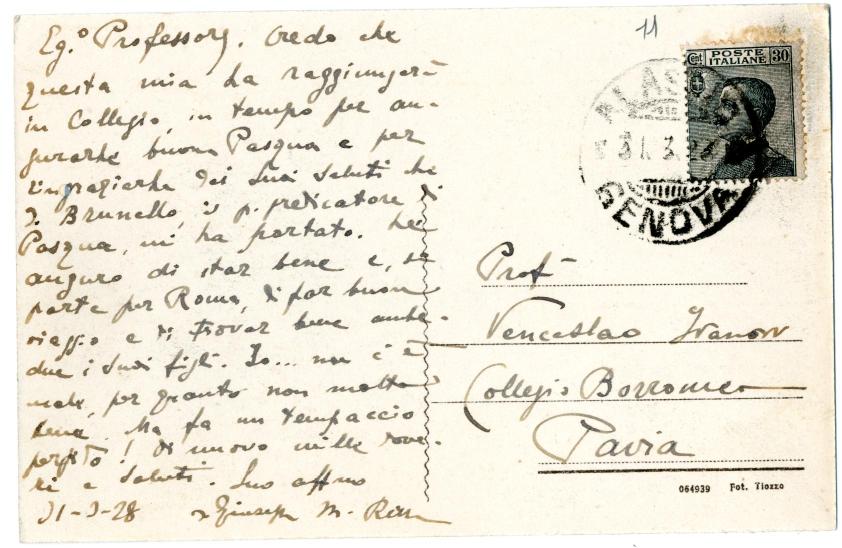 11
Eg.º Professore, Credo che
questa mia La raggiungerà
in Collegio, in tempo per au-
gurarle buona Pasqua e per
ringraziarla dei Suoi saluti che
D. Brunello, il p. predicatore di
Pasqua, mi ha portato. Le
auguro di star bene e, se
parte per Roma, di far buon
viaggio e di trovar bene ambe-
due i Suoi figli. Io... non c'è
male, per quanto non molto
bene. Ma fa un tempaccio
! Di nuovo mille
e saluti. Suo affmo
31-3-28 Giuseppe M.
POSTE
ITALIANE
Cent 30
ALASSIO
31.3.28
GENOVA
Prof
Venceslao Ivanov
Collegio Borromeo
Pavia
064939 Fot. Tiozzo